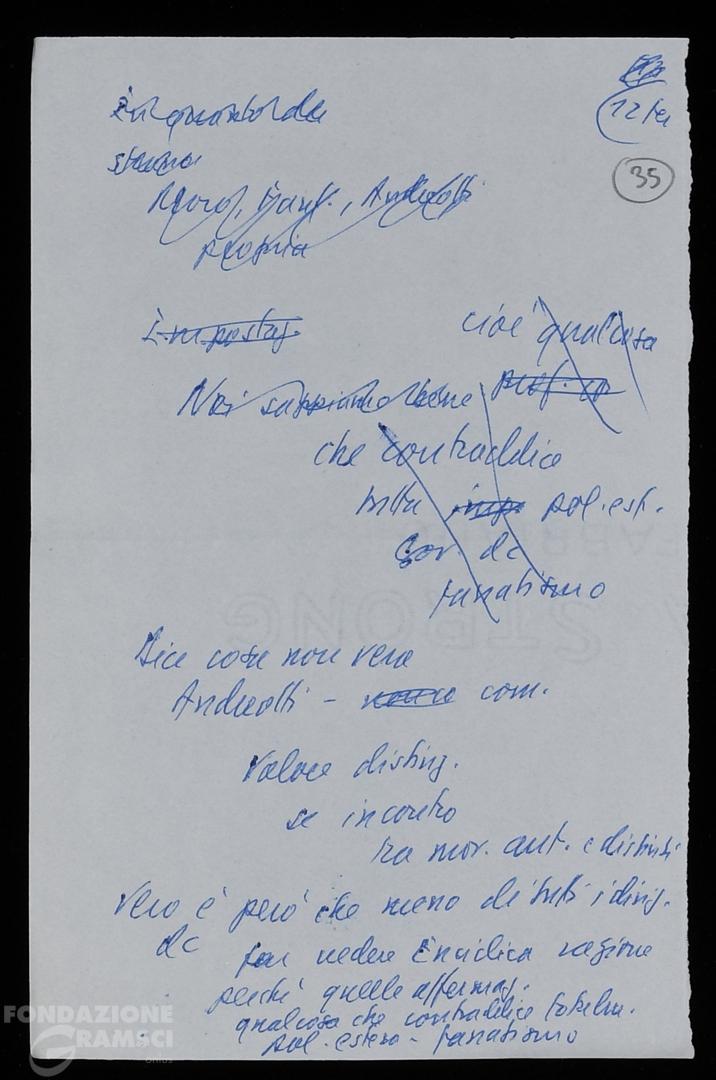 12/
35
In quanto da
stampa
Moro, Fanf., Andreotti
propria
Impostaz.
cioè qualcosa
Noi sappiamo bene
che contraddice
tutta imp. pol. est.
Gov. dc
fanatismo
Dice cosa non vera
Andreotti - com.
Valore disting.
se incontro
tra mov. aut. e distinti
Vero è però che meno di tutti i dirig.
dc far vedere Enciclica ragione
perché quelle affermaz.
qualcosa che contraddice totalm.
pol. estera - fanatismo
FONDAZIONE
GRAMSCI
onlus
STRONG
FABRIA